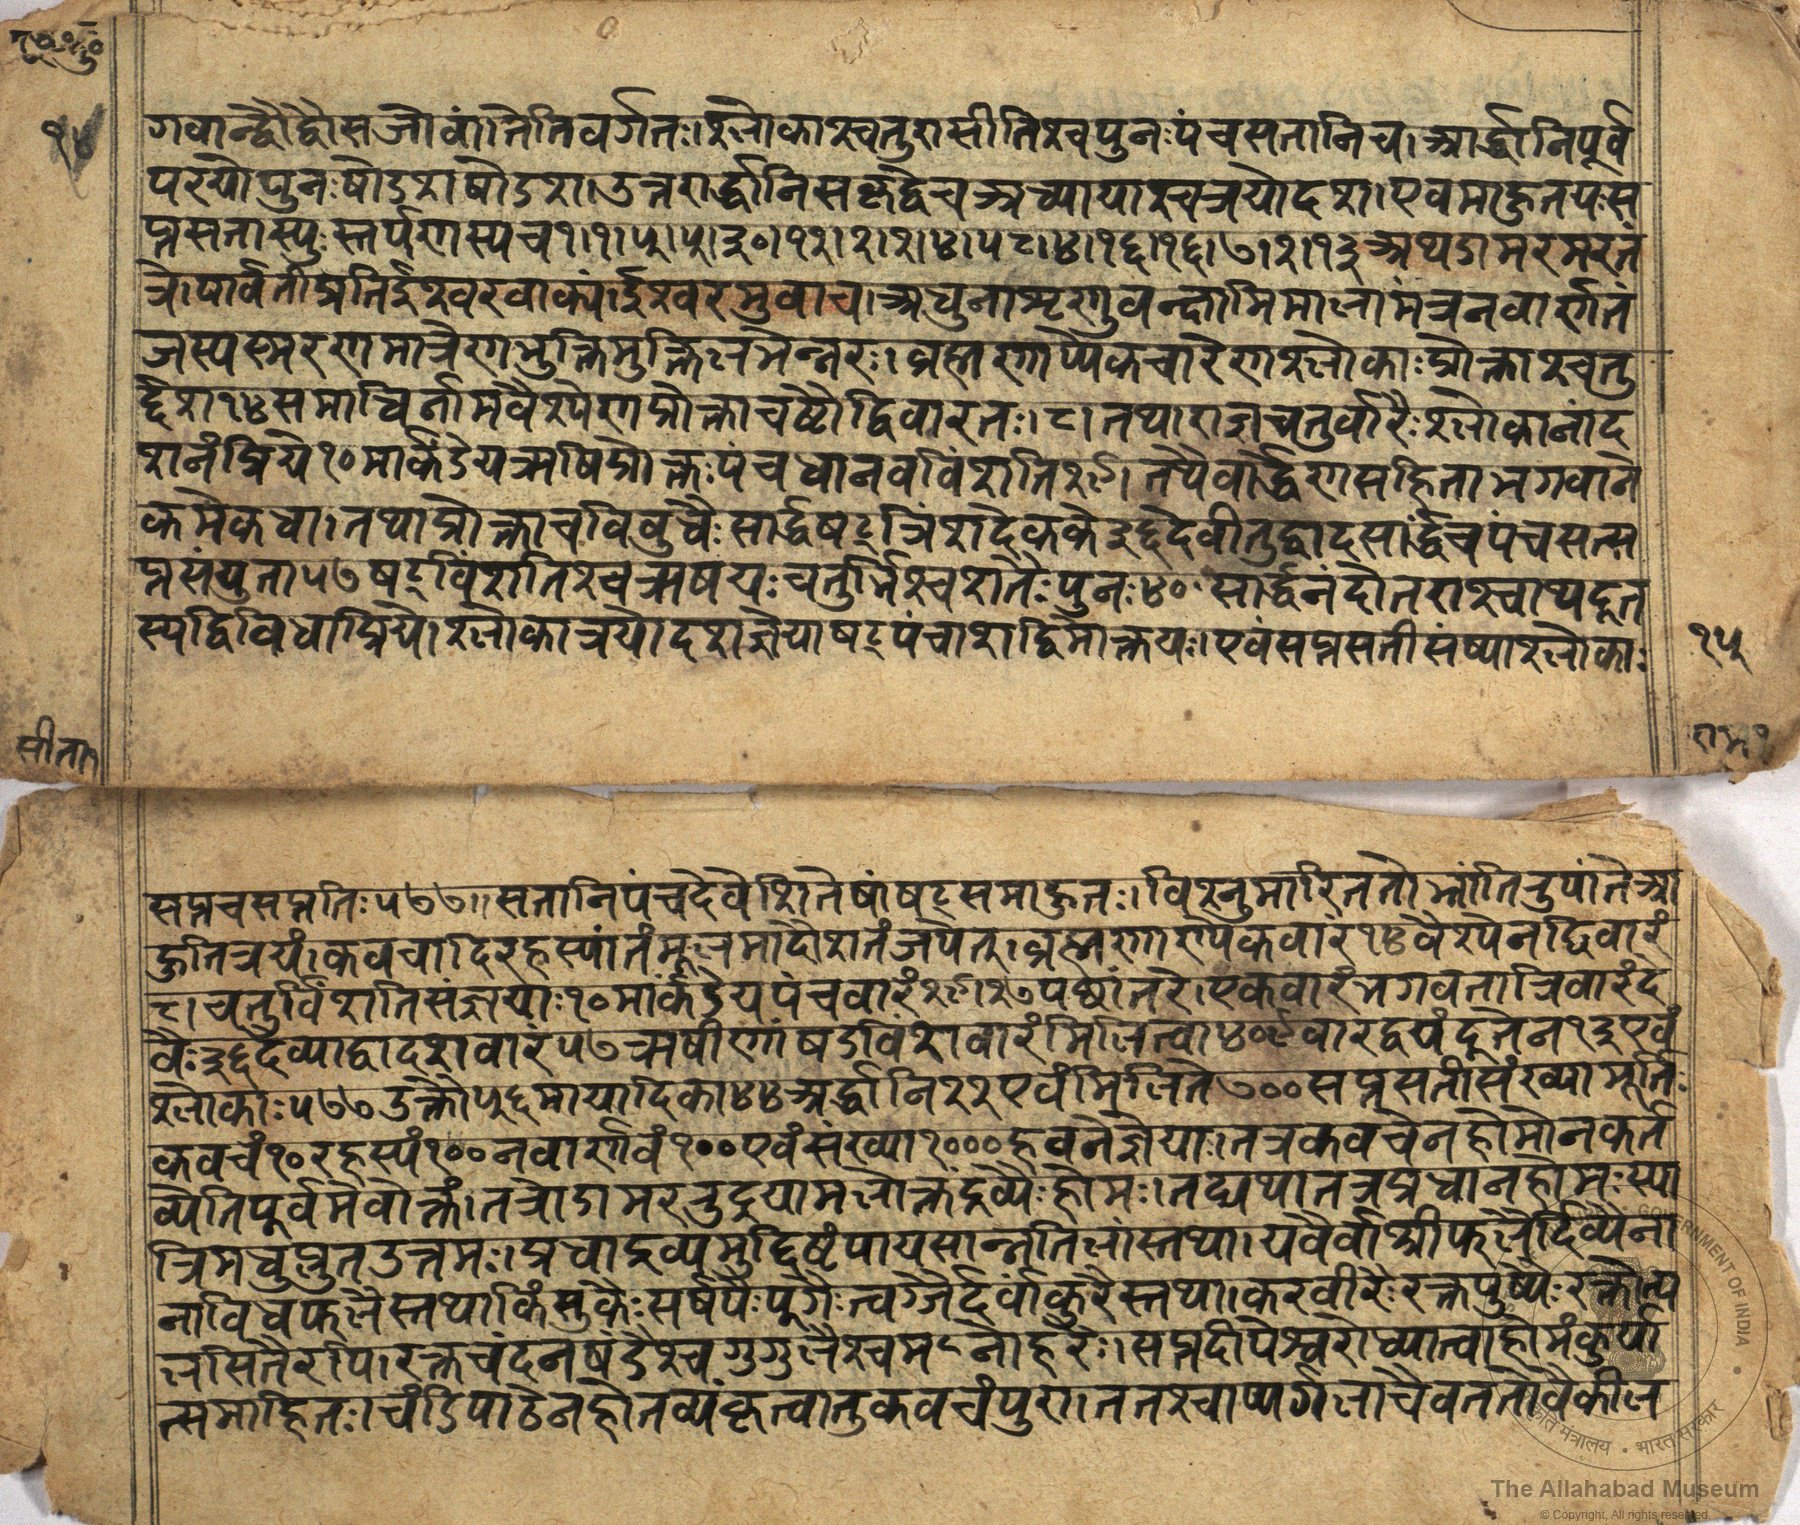 १५
गवान्द्वौद्वौसऔवांतितिवर्गतः।श्लोकाश्चतुरासीतिश्चपुनःपंचसतानिच।आर्द्धानिपूर्व
परयोपुनःषोडशषोडश।उत्तरार्द्धानिसकृद्वैचअध्यायाश्चत्रयोदश।एवमाहुतयःस
प्तसतास्युःस्तर्पणस्यच१।१।५।५।३०।१२।२।२।४।५८।४।१६।१६।७।२।१३अथडामरमरतं
त्रे।पार्वतीप्रतिईश्वरवाक्यं।ईश्वरमुवाच।अधुनाशृणुवक्ष्यामिमालामंत्रनवार्णतं
जस्यस्मरणमात्रेणभुक्तिमुक्तिलभेन्नरः।ब्रह्मणाप्येकचारेणश्लोकाःप्रोक्ताश्चतु
र्द्दश१४समाधिर्नामवैश्येणप्रोक्ताचष्टौद्विवारतः।८।तथाराज्ञाचतुर्वारैःश्लोकानांद
शनंप्रिये१०मार्कंडेयऋषिप्रोक्तःपंचधानवविंशति२९।तथैवार्द्धेणसहिताभगवाने
कमेकधा।तथाप्रोक्ताचविबुधैःसार्द्धषट्त्रिंशदेकके३६देवीतुद्वादसार्द्धंचपंचसत्स
प्तसंयुता५७षट्विंशतिश्चऋषयःचतुर्भिश्चशतैःपुनः४०सार्द्धनंदौतराश्चाथदूत
स्यद्विविधाप्रिये।श्लोकात्रयोदशज्ञेयाषट्पंचाशद्विमोक्तयः।एवंसप्तसतीसंष्याश्लोकाः
१५
सीता
राम१
सप्तचसप्ततिः५७७॥सतानिपंचदेवेशितेषांषट्समाहुतः।विश्नुमारिनतोभ्रांतिनुपांतेआ
हुतित्रयं।कवचादिरहस्यांतंमूलमादौशतंजपेत्।ब्रह्मणाएपेकवारं१४वैश्येनद्विवारं
८।चतुर्विंशतिसंज्ञयाः१०मार्कंडेयपंचवारं२९।२७पष्ठांतरे।एकवारंभगवतात्रिवारंदे
वैः३६देव्याद्वादशवारं५७ऋषीणांषडविंशवारंमिलित्वा४०९वारद्वयंदूतेन१३एवं
श्लोकाः५७७उक्तौ५६मायादिका४४अर्द्धानि२२एवंमिलिते७००सप्तसतीसंख्यामूर्तिः
कवचं१०रहस्यं१००नवार्णवं१००एवंसंख्या१०००हवनेज्ञेयाः।तत्रकवचेनहोमोनकर्त
व्येतिपूर्वमेवोक्तं।तत्रोडामरनुद्रयामलोक्तंद्रव्यैःहोमः।तद्यथातत्रप्रधानहोमःस्या
त्रिमधुप्लुतउत्तमः।प्रधाद्रव्यमुद्दिष्टंपायसान्नतिलांस्तथा।यवैर्वाश्रीफलैर्दिव्यैना
नाविधफलैस्तथाकिंसुकैःसर्षपैःपूगैःत्वग्जैर्दर्वांकुरैस्तथा।करवीरैःरक्तपुष्पैःरक्तोत्प
लसितैरपि।रक्तचंदनषंडैश्चगुगुलैश्चमनोहरैः।सप्तदीपेश्वरोध्यात्वाहोमंकुर्या
त्समाहितः।चंडिपाठेनहोतव्यंकृत्वातुकवचंपुरा।ततश्चाप्यर्गलाचैवततोवैकील
GOVERNMENT OF INDIA
भारत सरकार
The Allahabad Museum
© Copyright, All rights reserved.